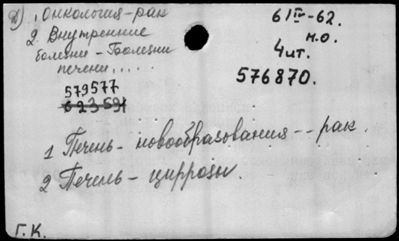 1. Онкология-рак
2. Внутренние
болезни - Болезни
печени.....
579577
62369
6/IV-62.
н.о.
4 ит.
576870.
1 Печень - новообразования -- рак.
2 Печень - циррозы.
Г.К.